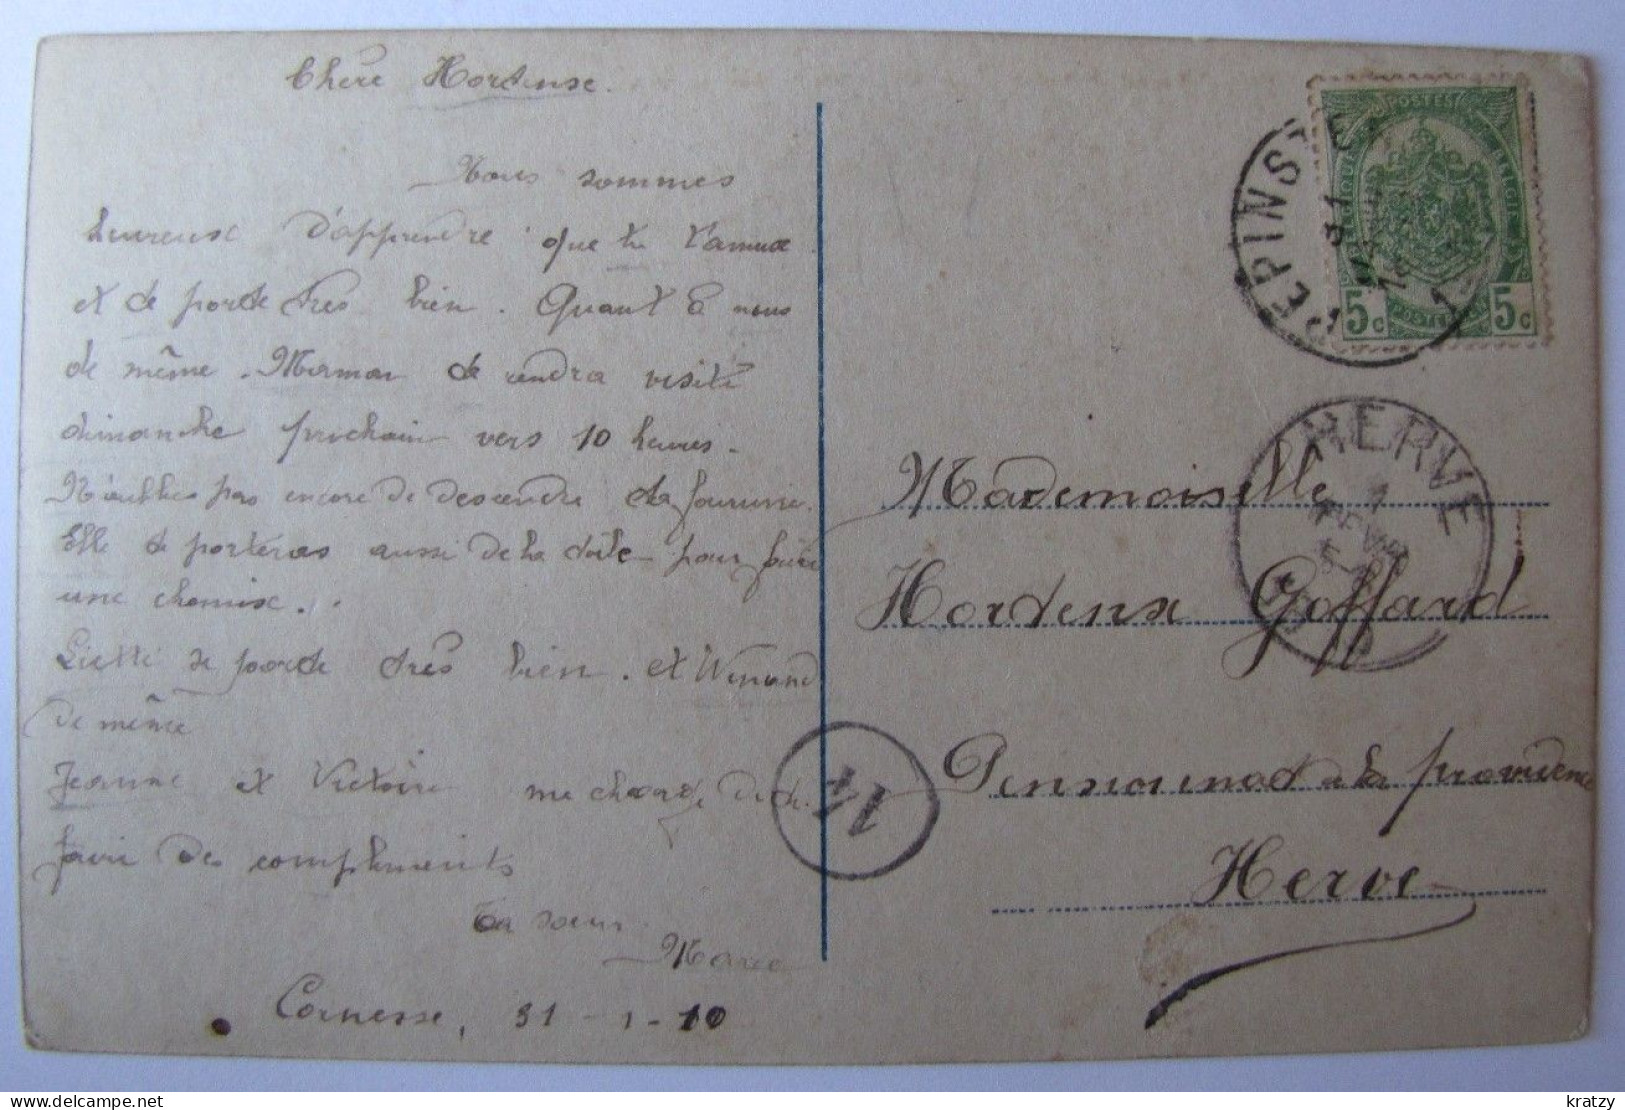 Chère Hortense.
Nous sommes
heureuse d'apprendre que tu t'amuse
et te porte très bien. Quant à nous
de même. Maman te rendra visite
dimanche prochain vers 10 heures.
N'oublies pas encore de descendre ta fourure.
Elle te porteras aussi de la toile pour faire
une chemise..
Liette se porte très bien. et Winand
de même
Jeanne et Victoire me charge de te
faire des compliments
Ta soeur.
Maria
Cornesse, 31-1-10
PEPINSTE
31
JANV
5c 5c
POSTES
BELGIQUE
HERVE
1
FEVR
14
Mademoiselle
Hortense Goffard
Pensionnat de la providence
Herve
kratzy